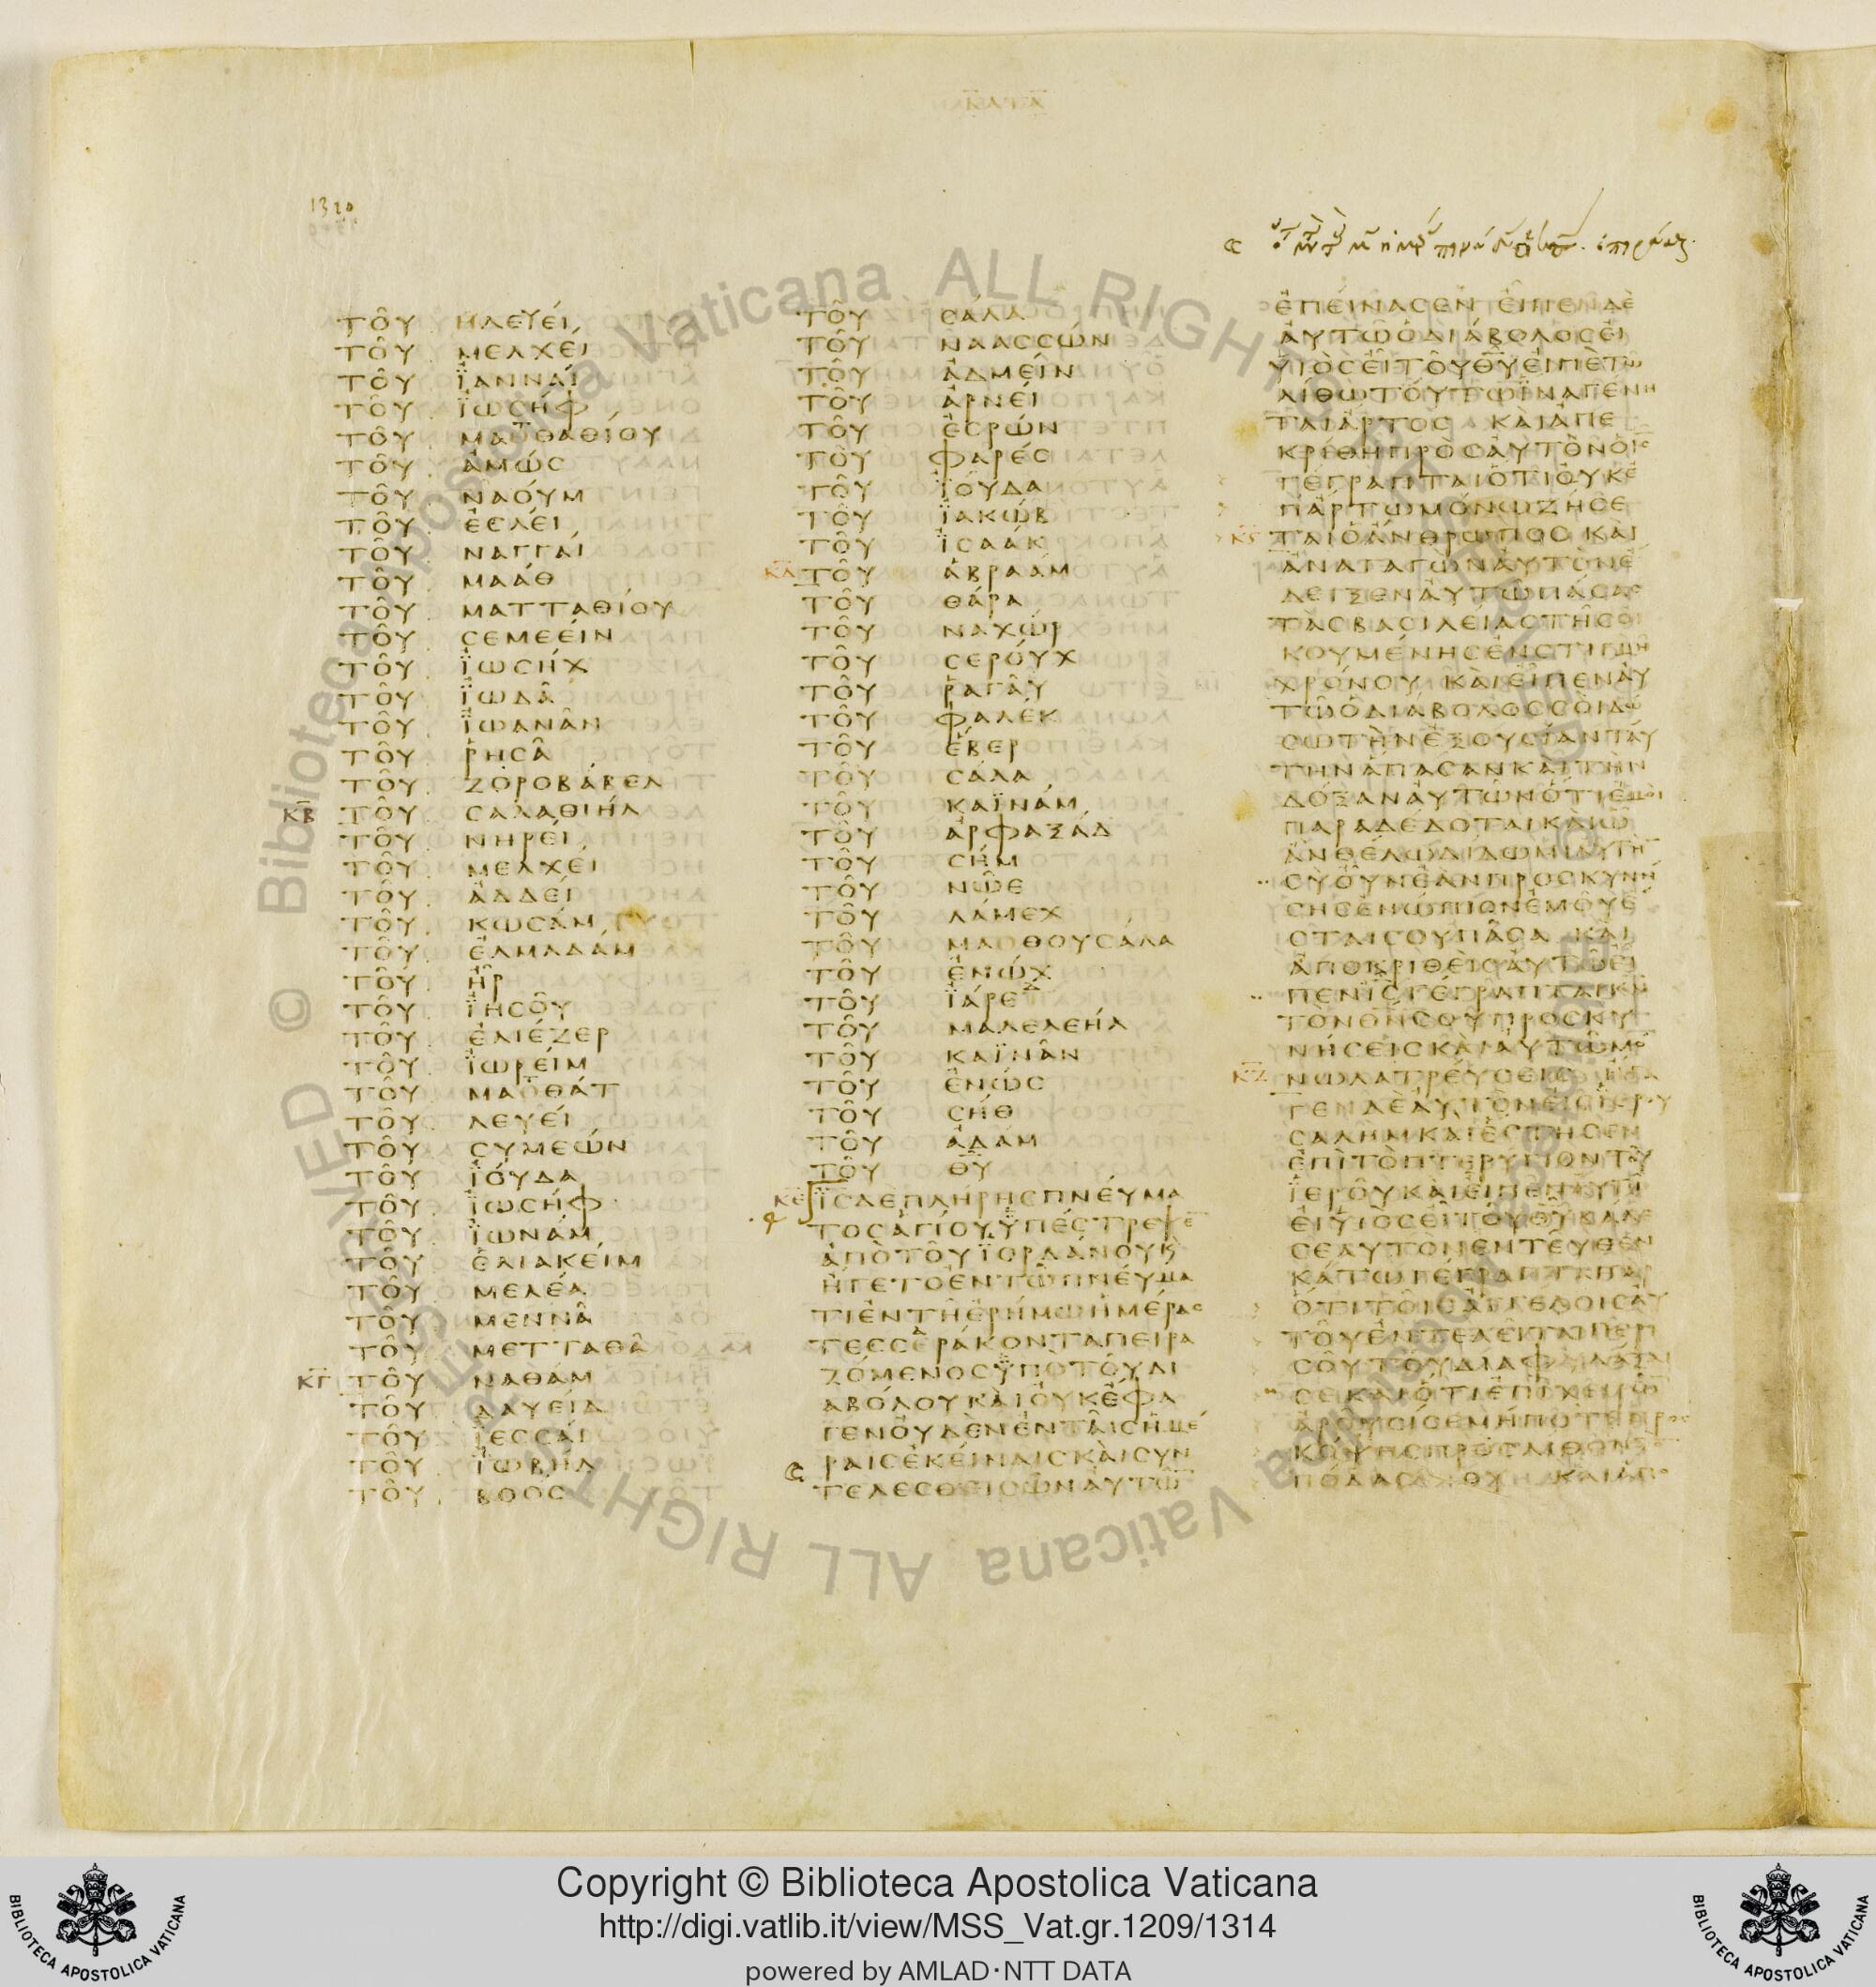 1320
ΤΟΥ ΗΛΕΥΕΙ
ΤΟΥ ΜΕΛΧΕΙ
ΤΟΥ ΪΑΝΝΑΙ
ΤΟΥ ΪΩϹΗΦ
ΤΟΥ ΜΑΤΘΑΘΙΟΥ
ΤΟΥ ΑΜΩϹ
ΤΟΥ ΝΑΟΥΜ
ΤΟΥ ΕϹΛΕΙ
ΤΟΥ ΝΑΓΓΑΙ
ΤΟΥ ΜΑΑΘ
ΤΟΥ ΜΑΤΤΑΘΙΟΥ
ΤΟΥ ϹΕΜΕΕΙΝ
ΤΟΥ ΪΩϹΗΧ
ΤΟΥ ΪΩΔΑ
ΤΟΥ ΪΩΑΝΑΝ
ΤΟΥ ΡΗϹΑ
ΤΟΥ ΖΟΡΟΒΑΒΕΛ
ΚΒ ΤΟΥ ϹΑΛΑΘΙΗΛ
ΤΟΥ ΝΗΡΕΙ
ΤΟΥ ΜΕΛΧΕΙ
ΤΟΥ ΑΔΔΕΙ
ΤΟΥ ΚΩϹΑΜ
ΤΟΥ ΕΛΜΑΔΑΜ
ΤΟΥ ΗΡ
ΤΟΥ ΪΗϹΟΥ
ΤΟΥ ΕΛΙΕΖΕΡ
ΤΟΥ ΪΩΡΕΙΜ
ΤΟΥ ΜΑΘΘΑΤ
ΤΟΥ ΛΕΥΕΙ
ΤΟΥ ϹΥΜΕΩΝ
ΤΟΥ ΪΟΥΔΑ
ΤΟΥ ΪΩϹΗΦ
ΤΟΥ ΪΩΝΑΜ
ΤΟΥ ΕΛΙΑΚΕΙΜ
ΤΟΥ ΜΕΛΕΑ
ΤΟΥ ΜΕΝΝΑ
ΤΟΥ ΜΕΤΤΑΘΑ
ΚΓ ΤΟΥ ΝΑΘΑΜ
ΤΟΥ ΔΑΥΕΙΔ
ΤΟΥ ΪΕϹϹΑΙ
ΤΟΥ ΪΩΒΗΛ
ΤΟΥ ΒΟΟϹ
ΤΟΥ ϹΑΛΑ
ΤΟΥ ΝΑΑϹϹΩΝ
ΤΟΥ ΑΔΜΕΙΝ
ΤΟΥ ΑΡΝΕΙ
ΤΟΥ ΕϹΡΩΝ
ΤΟΥ ΦΑΡΕϹ
ΤΟΥ ΪΟΥΔΑ
ΤΟΥ ΪΑΚΩΒ
ΤΟΥ ΪϹΑΑΚ
ΚΔ ΤΟΥ ΑΒΡΑΑΜ
ΤΟΥ ΘΑΡΑ
ΤΟΥ ΝΑΧΩΡ
ΤΟΥ ϹΕΡΟΥΧ
ΤΟΥ ΡΑΓΑΥ
ΤΟΥ ΦΑΛΕΚ
ΤΟΥ ΕΒΕΡ
ΤΟΥ ϹΑΛΑ
ΤΟΥ ΚΑΪΝΑΜ
ΤΟΥ ΑΡΦΑΞΑΔ
ΤΟΥ ϹΗΜ
ΤΟΥ ΝΩΕ
ΤΟΥ ΛΑΜΕΧ
ΤΟΥ ΜΑΘΟΥϹΑΛΑ
ΤΟΥ ΕΝΩΧ
ΤΟΥ ΪΑΡΕΔ
ΤΟΥ ΜΑΛΕΛΕΗΛ
ΤΟΥ ΚΑΪΝΑΝ
ΤΟΥ ΕΝΩϹ
ΤΟΥ ϹΗΘ
ΤΟΥ ΑΔΑΜ
ΤΟΥ ΘΥ
ΚΕ ΙϹΔΕΠΛΗΡΗϹΠΝΕΥΜΑ
ΤΟϹΑΓΙΟΥΫΠΕϹΤΡΕΨΕ
ΑΠΟΤΟΥΪΟΡΔΑΝΟΥΚ
ΗΓΕΤΟΕΝΤΩΠΝΕΥΜΑ
ΤΙΕΝΤΗΕΡΗΜΩΗΜΕΡΑϹ
ΤΕϹϹΕΡΑΚΟΝΤΑΠΕΙΡΑ
ΖΟΜΕΝΟϹΫΠΟΤΟΥΔΙ
ΑΒΟΛΟΥΚΑΙΟΥΚΕΦΑ
ΓΕΝΟΥΔΕΝΕΝΤΑΙϹΗΜΕ
ΡΑΙϹΕΚΕΙΝΑΙϹΚΑΙϹΥΝ
ΤΕΛΕϹΘΕΙϹΩΝΑΥΤΩ
ΕΠΕΙΝΑϹΕΝ ΕΙΠΕΝΔΕ
ΑΥΤΩΟΔΙΑΒΟΛΟϹΕΙ
ΥΙΟϹΕΙΤΟΥΘΥΕΙΠΕΤΩ
ΛΙΘΩΤΟΥΤΩΪΝΑΓΕΝΗ
ΤΑΙΑΡΤΟϹ ΚΑΙΑΠΕ
ΚΡΙΘΗΠΡΟϹΑΥΤΟΝΟΙϹ
ΓΕΓΡΑΠΤΑΙΟΤΙΟΥΚΕ
ΠΑΡΤΩΜΟΝΩΖΗϹΕ
ΚϚ ΤΑΙΟΑΝΘΡΩΠΟϹ ΚΑΙ
ΑΝΑΓΑΓΩΝΑΥΤΟΝΕ
ΔΕΙΞΕΝΑΥΤΩΠΑϹΑϹ
ΤΑϹΒΑϹΙΛΕΙΑϹΤΗϹΟΙ
ΚΟΥΜΕΝΗϹΕΝϹΤΙΓΜΗ
ΧΡΟΝΟΥ ΚΑΙΕΙΠΕΝΑΥ
ΤΩΟΔΙΑΒΟΛΟϹϹΟΙΔΩ
ϹΩΤΗΝΕΞΟΥϹΙΑΝΤΑΥ
ΤΗΝΑΠΑϹΑΝΚΑΙΤΗΝ
ΔΟΞΑΝΑΥΤΩΝΟΤΙΕΜΟΙ
ΠΑΡΑΔΕΔΟΤΑΙΚΑΙΩ
ΑΝΘΕΛΩΔΙΔΩΜΙΑΥΤΗ
ϹΥΟΥΝΕΑΝΠΡΟϹΚΥΝΗ
ϹΗϹΕΝΩΠΙΟΝΕΜΟΥΕ
ϹΤΑΙϹΟΥΠΑϹΑ ΚΑΙ
ΑΠΟΚΡΙΘΕΙϹΑΥΤΩΕΙ
ΠΕΝΙϹΓΕΓΡΑΠΤΑΙΚΝ
ΤΟΝΘΝϹΟΥΠΡΟϹΚΥ
ΝΗϹΕΙϹΚΑΙΑΥΤΩΜΟ
ΚΖ ΝΩΛΑΤΡΕΥϹΕΙϹ ΗΓΑ
ΓΕΝΔΕΑΥΤΟΝΕΙϹΪΕΡΟΥ
ϹΑΛΗΜΚΑΙΕϹΤΗϹΕΝ
ΕΠΙΤΟΠΤΕΡΥΓΙΟΝΤΟΥ
ΪΕΡΟΥΚΑΙΕΙΠΕΝΑΥΤΩ
ΕΙΥΙΟϹΕΙΤΟΥΘΥΒΑΛΕ
ϹΕΑΥΤΟΝΕΝΤΕΥΘΕΝ
ΚΑΤΩΓΕΓΡΑΠΤΑΙΓΑΡ
ΟΤΙΤΟΙϹΑΓΓΕΛΟΙϹΑΥ
ΤΟΥΕΝΤΕΛΕΙΤΑΙΠΕΡΙ
ϹΟΥΤΟΥΔΙΑΦΥΛΑΞΑΙ
ϹΕΚΑΙΟΤΙΕΠΙΧΕΙΡΩ
ΑΡΟΥϹΙϹΕΜΗΠΟΤΕΠΡΟϹ
ΚΟΨΗϹΠΡΟϹΛΙΘΟΝΤΟ
ΠΟΔΑϹΟΥ ΚΑΙΑΠΟ
Biblioteca Apostolica Vaticana ALL RIGHTS RESERVED ©
Copyright © Biblioteca Apostolica Vaticana
http://digi.vatlib.it/view/MSS_Vat.gr.1209/1314
powered by AMLAD·NTT DATA
BIBLIOTECA APOSTOLICA VATICANA
BIBLIOTECA APOSTOLICA VATICANA